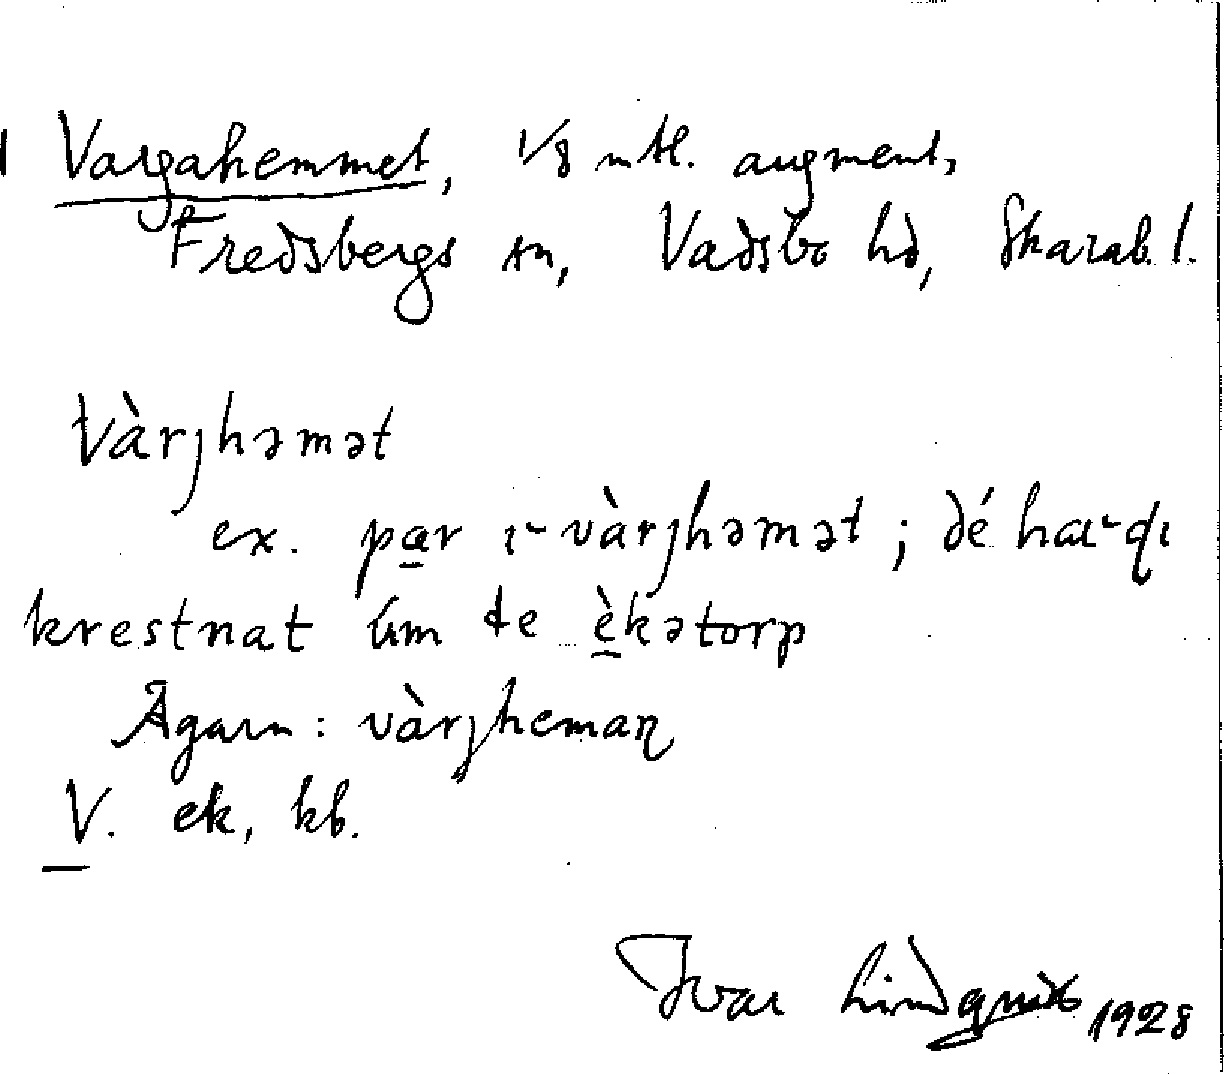 Vargahemmet, 1/8 mtl. augment,
Fredsbergs sn, Vadsbo hd, Skarab. l.
vàrjhəmət
ex. par ı vàrjhəmət ; dé ha dı
krestnat úm te èkətorp
Ägarn : vàrjheman
V. ek, kb.
Ivar Lindquist 1928